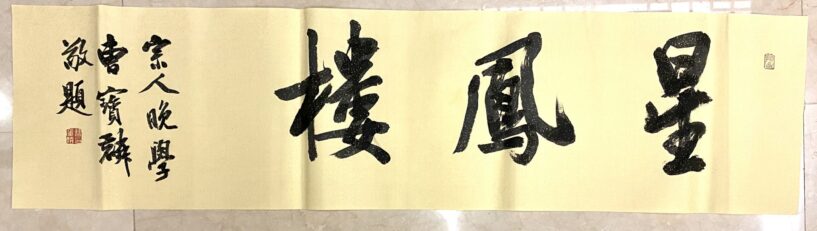 星鳳樓
宗人晚學
曹寶麟
敬題